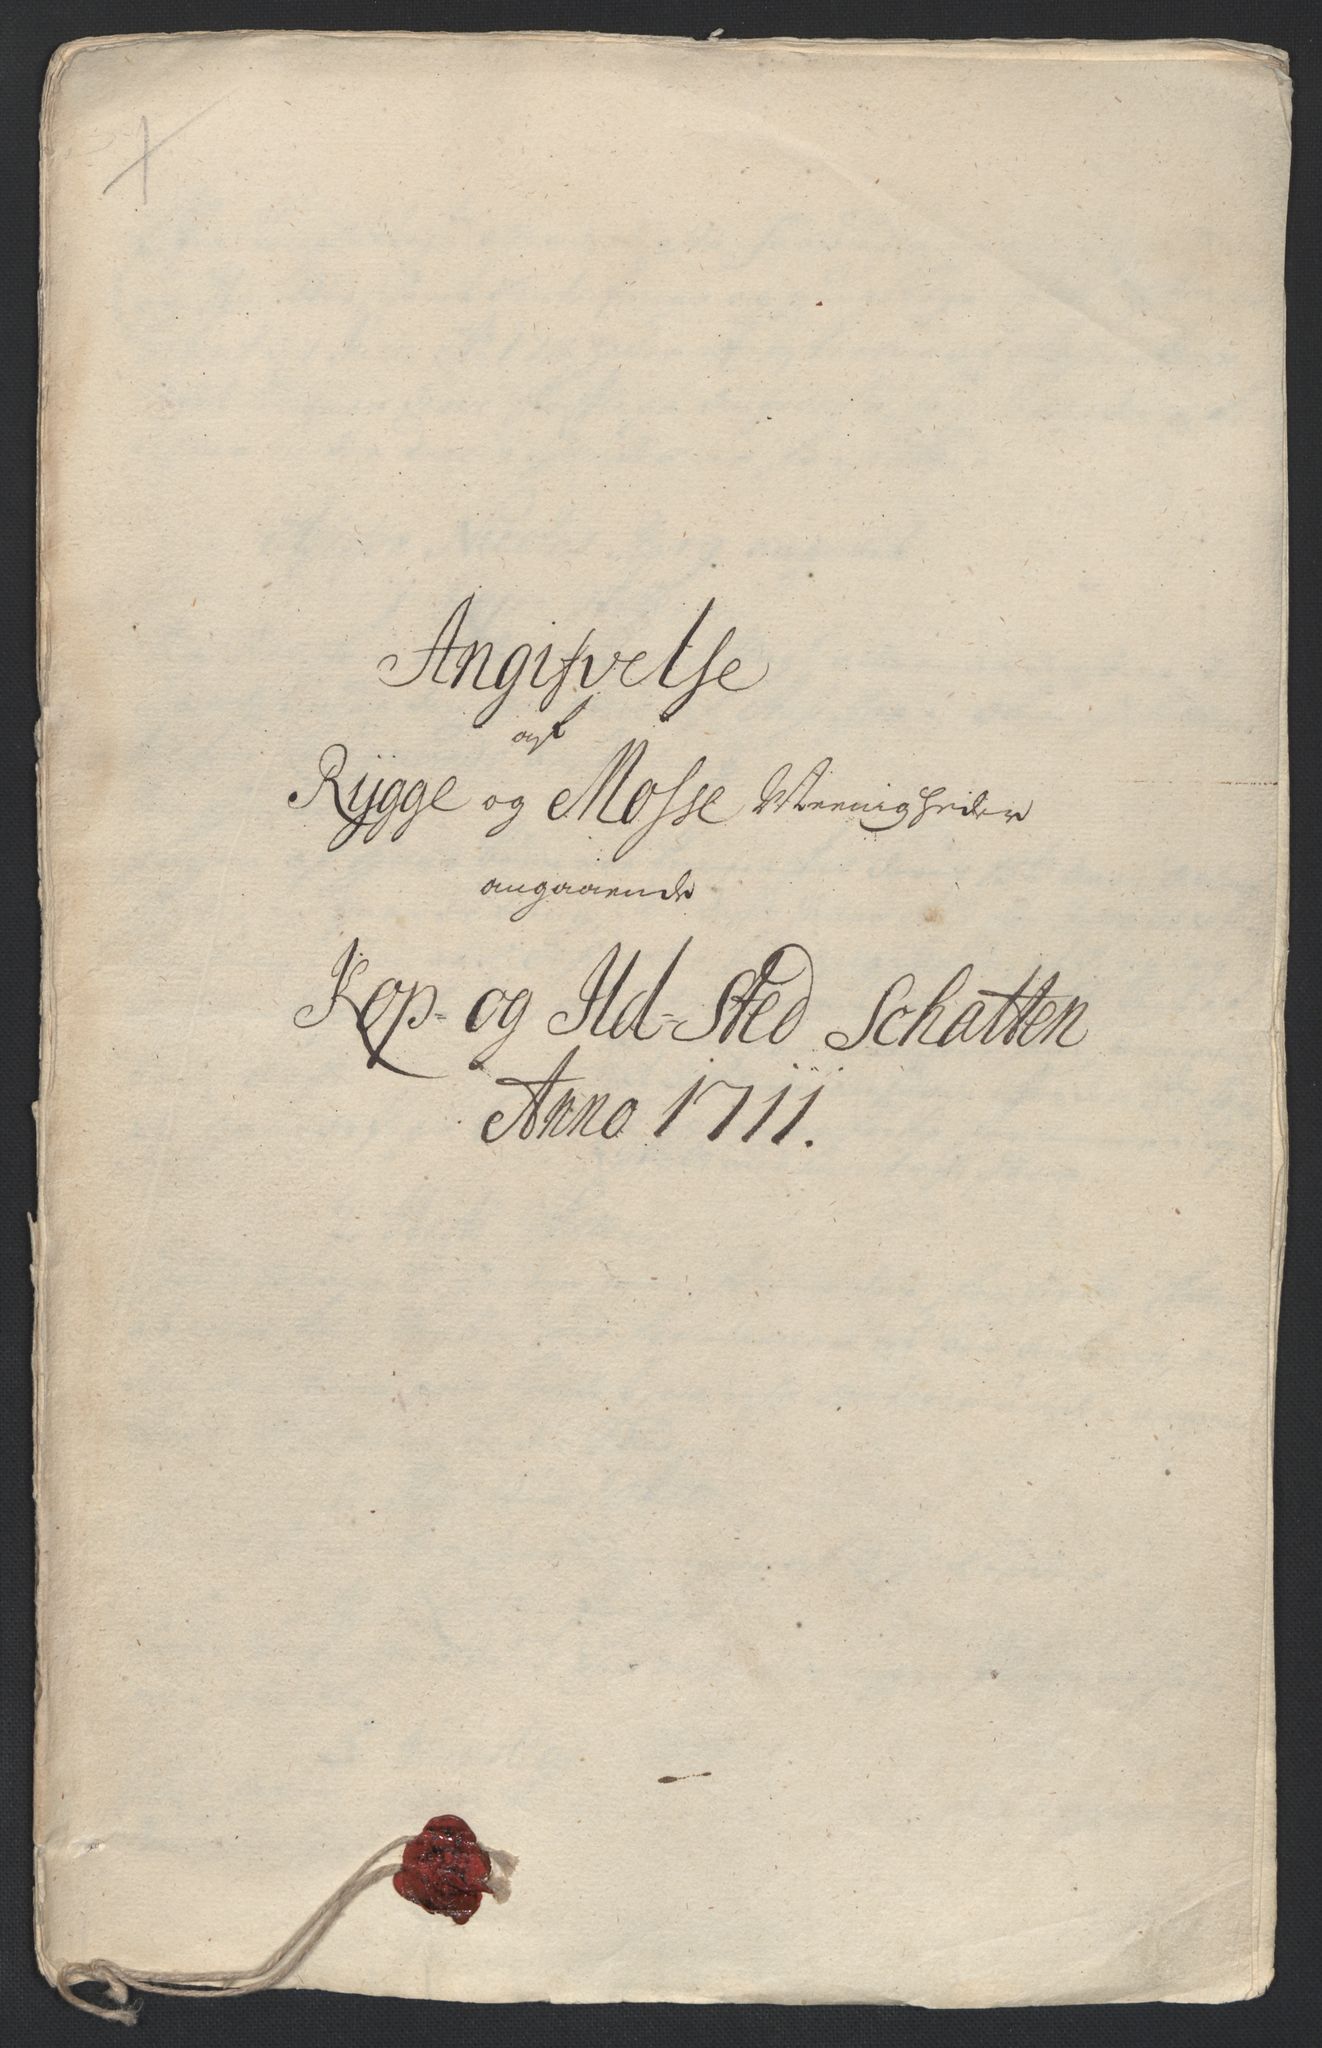 Angifvelse
af
Rÿgge og Mosse Meenigheder
angaaende
Kop- og Ild-Sted Schatten
Anno 1711.